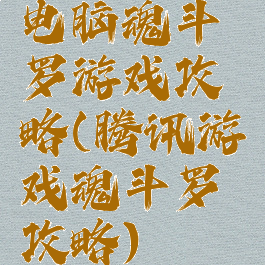 电脑魂斗
罗游戏攻
略(腾讯游
戏魂斗罗
攻略)